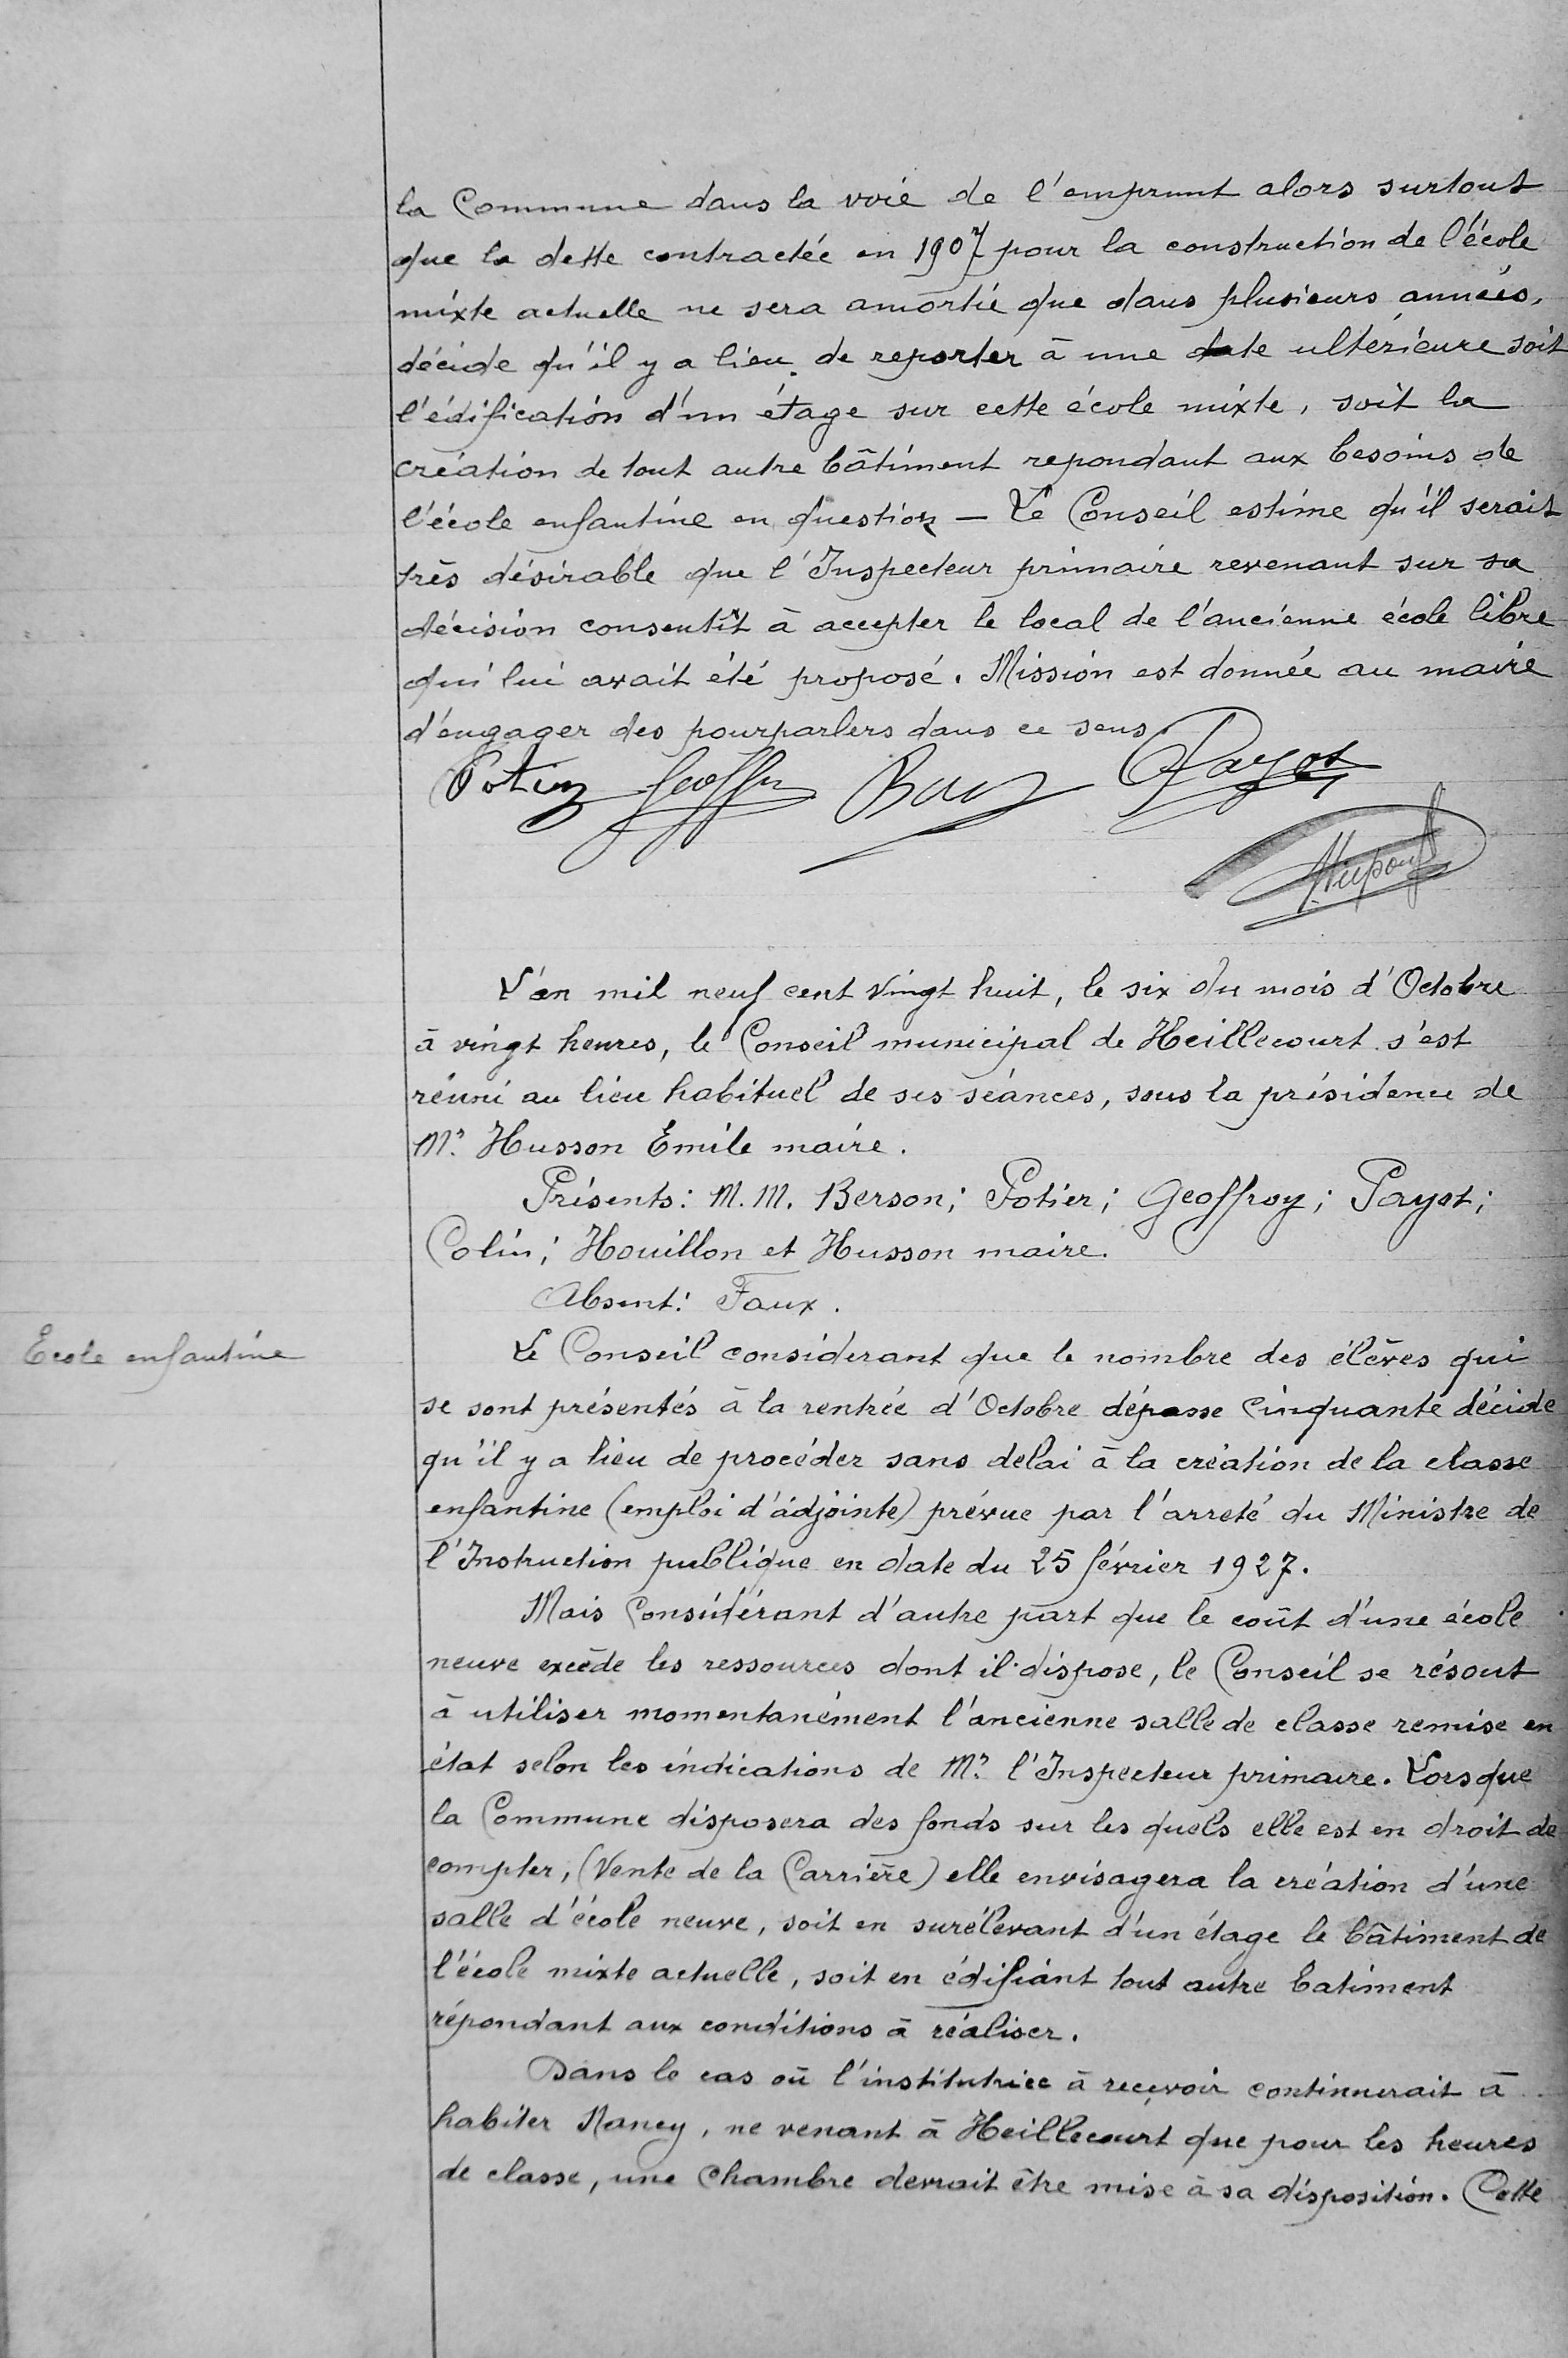 la Commune dans la voie de l'emprunt alors surtout
que la dette contractée en 1907 pour la construction de l'école
mixte actuelle ne sera amortie que dans plusieurs années,
décide qu'il y a lieu de reporter à une date ultérieure soit
l'édification d'un étage sur cette école mixte, soit la
création de tout autre bâtiment repondant aux besoins de
l'école enfantine en question — Le Conseil estime qu'il serait
très désirable que l'Inspecteur primaire revenant sur sa
décision consentît à accepter le local de l'ancienne école libre
qui lui avait été proposé. Mission est donnée au maire
d'engager des pourparlers dans ce sens.
Potier Geoffroy Payot
L'an mil neuf cent vingt huit, le six du mois d'Octobre
à vingt heures, le Conseil municipal de Heillecourt s'est
réuni au lieu habituel de ses séances, sous la présidence de
Mr. Husson Emile maire.
Présents: M.M. Berson; Potier; Geoffroy; Payot;
Colin; Houillon et Husson maire.
Absent: Faux.
Ecole enfantine
Le Conseil considerant que le nombre des élèves qui
se sont présentés à la rentrée d'Octobre dépasse cinquante décide
qu'il y a lieu de procéder sans delai à la création de la classe
enfantine (emploi d'adjointe) prévue par l'arreté du Ministre de
l'Instruction publique en date du 25 février 1927.
Mais Considérant d'autre part que le coût d'une école
neuve excède les ressources dont il dispose, le Conseil se résout
à utiliser momentanément l'ancienne salle de classe remise en
état selon les indications de Mr. l'Inspecteur primaire. Lorsque
la Commune disposera des fonds sur les quels elle est en droit de
compter, (Vente de la Carrière) elle envisagera la création d'une
salle d'école neuve, soit en surélevant d'un étage le bâtiment de
l'école mixte actuelle, soit en édifiant tout autre batiment
répondant aux conditions à réaliser.
Dans le cas où l'institutrice à reçevoir continuerait à
habiter Nancy, ne venant à Heillecourt que pour les heures
de classe, une Chambre devrait être mise à sa disposition. Cette